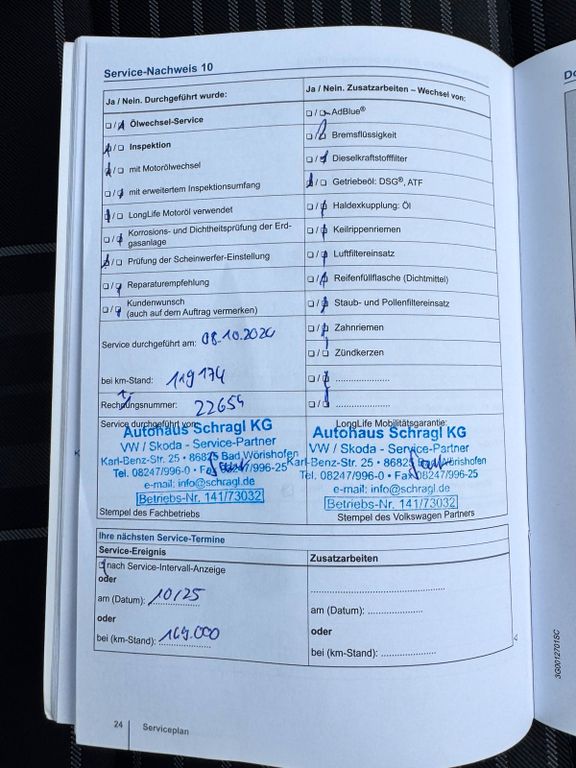 Service-Nachweis 10
Ja / Nein. Durchgeführt wurde:
☐ / ☐ Ölwechsel-Service
☐ / ☐ Inspektion
☐ / ☐ mit Motorölwechsel
☐ / ☐ mit erweitertem Inspektionsumfang
☐ / ☐ LongLife Motoröl verwendet
☐ / ☐ Korrosions- und Dichtheitsprüfung der Erd-
gasanlage
☐ / ☐ Prüfung der Scheinwerfer-Einstellung
☐ / ☐ Reparaturempfehlung
☐ / ☐ Kundenwunsch
(auch auf dem Auftrag vermerken)
Service durchgeführt am: 08.10.2024
bei km-Stand: 119174
Rechnungsnummer: 22654
Service durchgeführt von:
Autohaus Schragl KG
VW / Skoda - Service-Partner
Karl-Benz-Str. 25 • 86825 Bad Wörishofen
Tel. 08247/996-0 • Fax 08247/996-25
e-mail: info@schragl.de
Betriebs-Nr. 141/73032
Stempel des Fachbetriebs
Ja / Nein. Zusatzarbeiten – Wechsel von:
☐ / ☐ AdBlue®
☐ / ☐ Bremsflüssigkeit
☐ / ☐ Dieselkraftstofffilter
☐ / ☐ Getriebeöl: DSG®, ATF
☐ / ☐ Haldexkupplung: Öl
☐ / ☐ Keilrippenriemen
☐ / ☐ Luftfiltereinsatz
☐ / ☐ Reifenfüllflasche (Dichtmittel)
☐ / ☐ Staub- und Pollenfiltereinsatz
☐ / ☐ Zahnriemen
☐ / ☐ Zündkerzen
☐ / ☐ .....................
☐ / ☐ .....................
LongLife Mobilitätsgarantie:
Autohaus Schragl KG
VW / Skoda - Service-Partner
Karl-Benz-Str. 25 • 86825 Wörishofen
Tel. 08247/996-0 • Fax 08247/996-25
e-mail: info@schragl.de
Betriebs-Nr. 141/73032
Stempel des Volkswagen Partners
Ihre nächsten Service-Termine
Service-Ereignis
☐ nach Service-Intervall-Anzeige
oder
am (Datum): 10/25
oder
bei (km-Stand): 149.000
Zusatzarbeiten
am (Datum): .....................
oder
bei (km-Stand): .....................
24 Serviceplan
3G0012701SC
Do